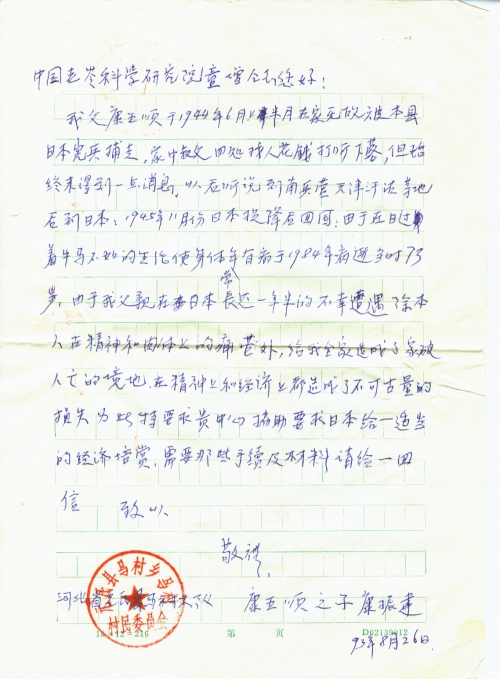 中国老龄科学研究院童增全志您好：
我父康五顺于1944年6月上半月在家无故被本县
日本宪兵捕走，家中叔父四处找人花钱打听下落，但始
终未得到一点消息，以后听说到南兵营天津 等地
后到日本，1945年11月份日本投降后回国，由于在日过
着牛马不如的生活使身体常年有病于1984年病逝当时73
岁，由于我父亲在日本长达一年半的不幸遭遇除本
人在精神和肉体上的痛苦外，给我全家造成了家破
人亡的境地，在精神上和经济上都造成了不可估量的
损失为此特要求贵中心协助要求日本给一适当
的经济培赏，需要那些手续及材料请给一回
信 致以
敬礼，
河北省元氏县马村
康五顺之子康振建
93年8月26日
元氏县马村乡马村
村民委员会
18412-216 第 页 D02139012